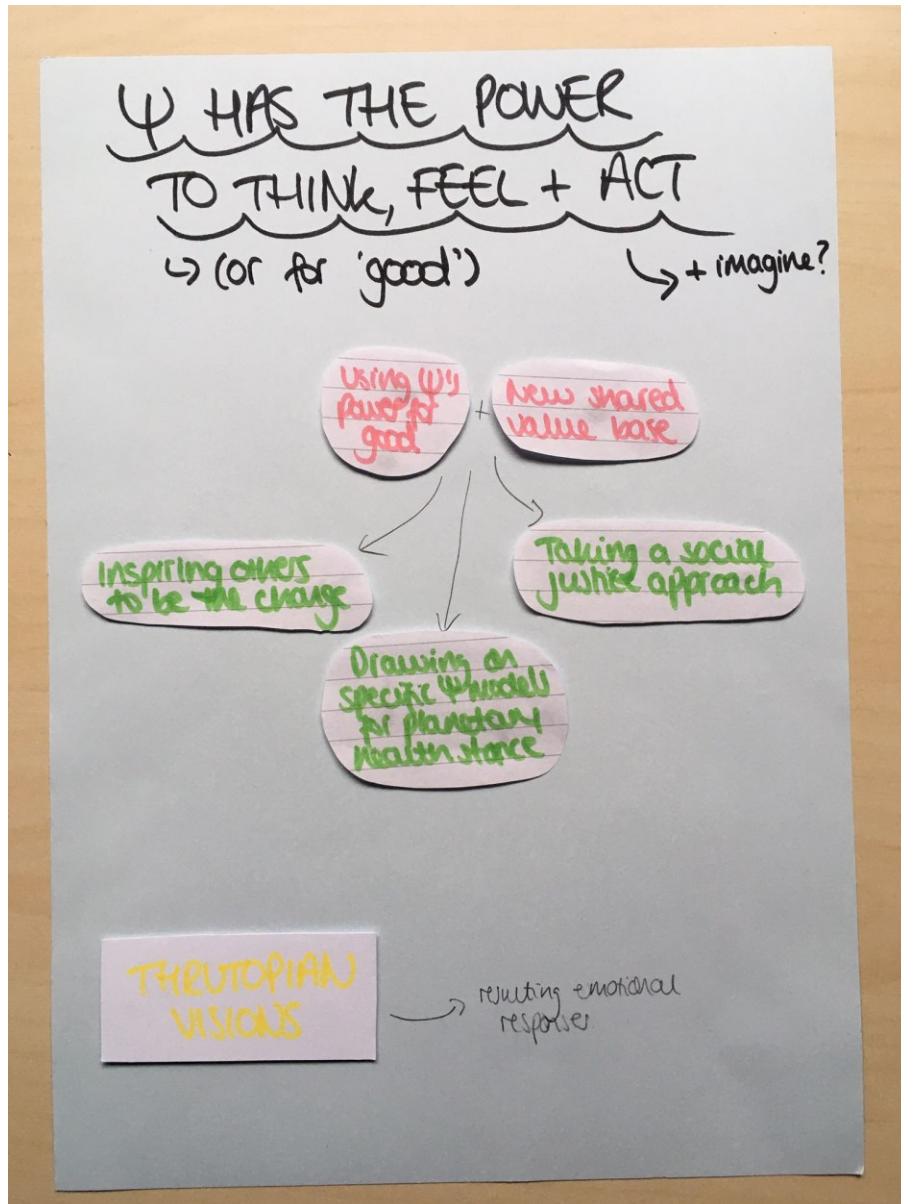 Ψ HAS THE POWER
TO THINK, FEEL + ACT
↳ (or for 'good')
↳ + imagine?
Using Ψ's
power for
good
+
New shared
value base
Inspiring others
to be the change
Taking a social
justice approach
Drawing on
specific Ψ models
for planetary
health stance
THRUTOPIAN
VISIONS
→ resulting emotional
responses